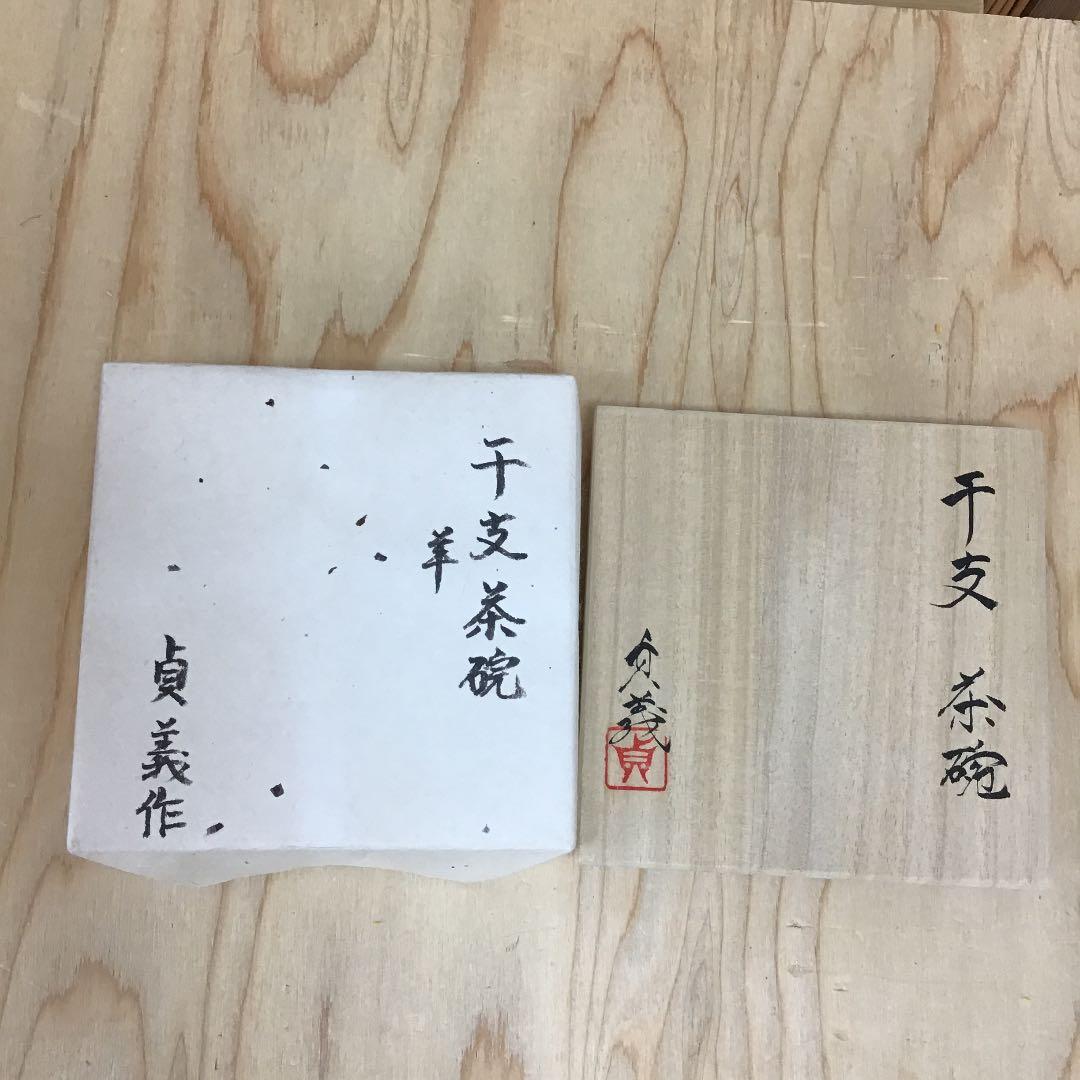 干支茶碗
羊
貞義作
干支 茶碗
貞義
貞